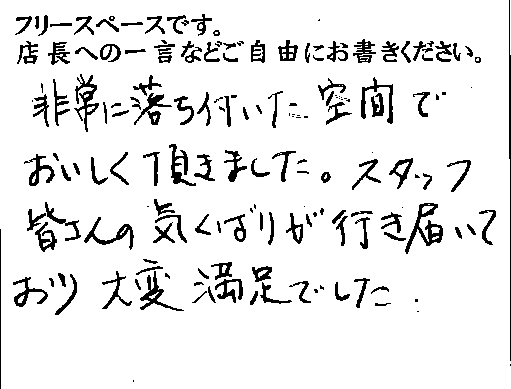 フリースペースです。
店長への一言などご自由にお書きください。
非常に落ち付いた空間で
おいしく頂きました。スタッフ
皆さんの気くばりが行き届いて
おり大変満足でした.